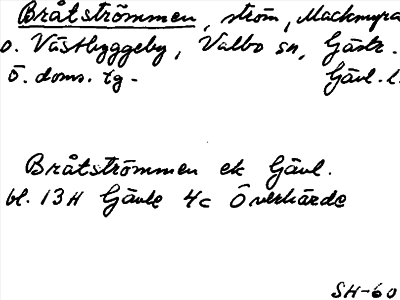 Bråtströmmen, ström, Mackmyra
o. Västbyggeby, Valbo sn, Gästr.
Ö. doms. tg. Gävl. l.
Bråtströmmen ek Gävl.
bl. 13H Gävle 4c Överhärde
SH-60